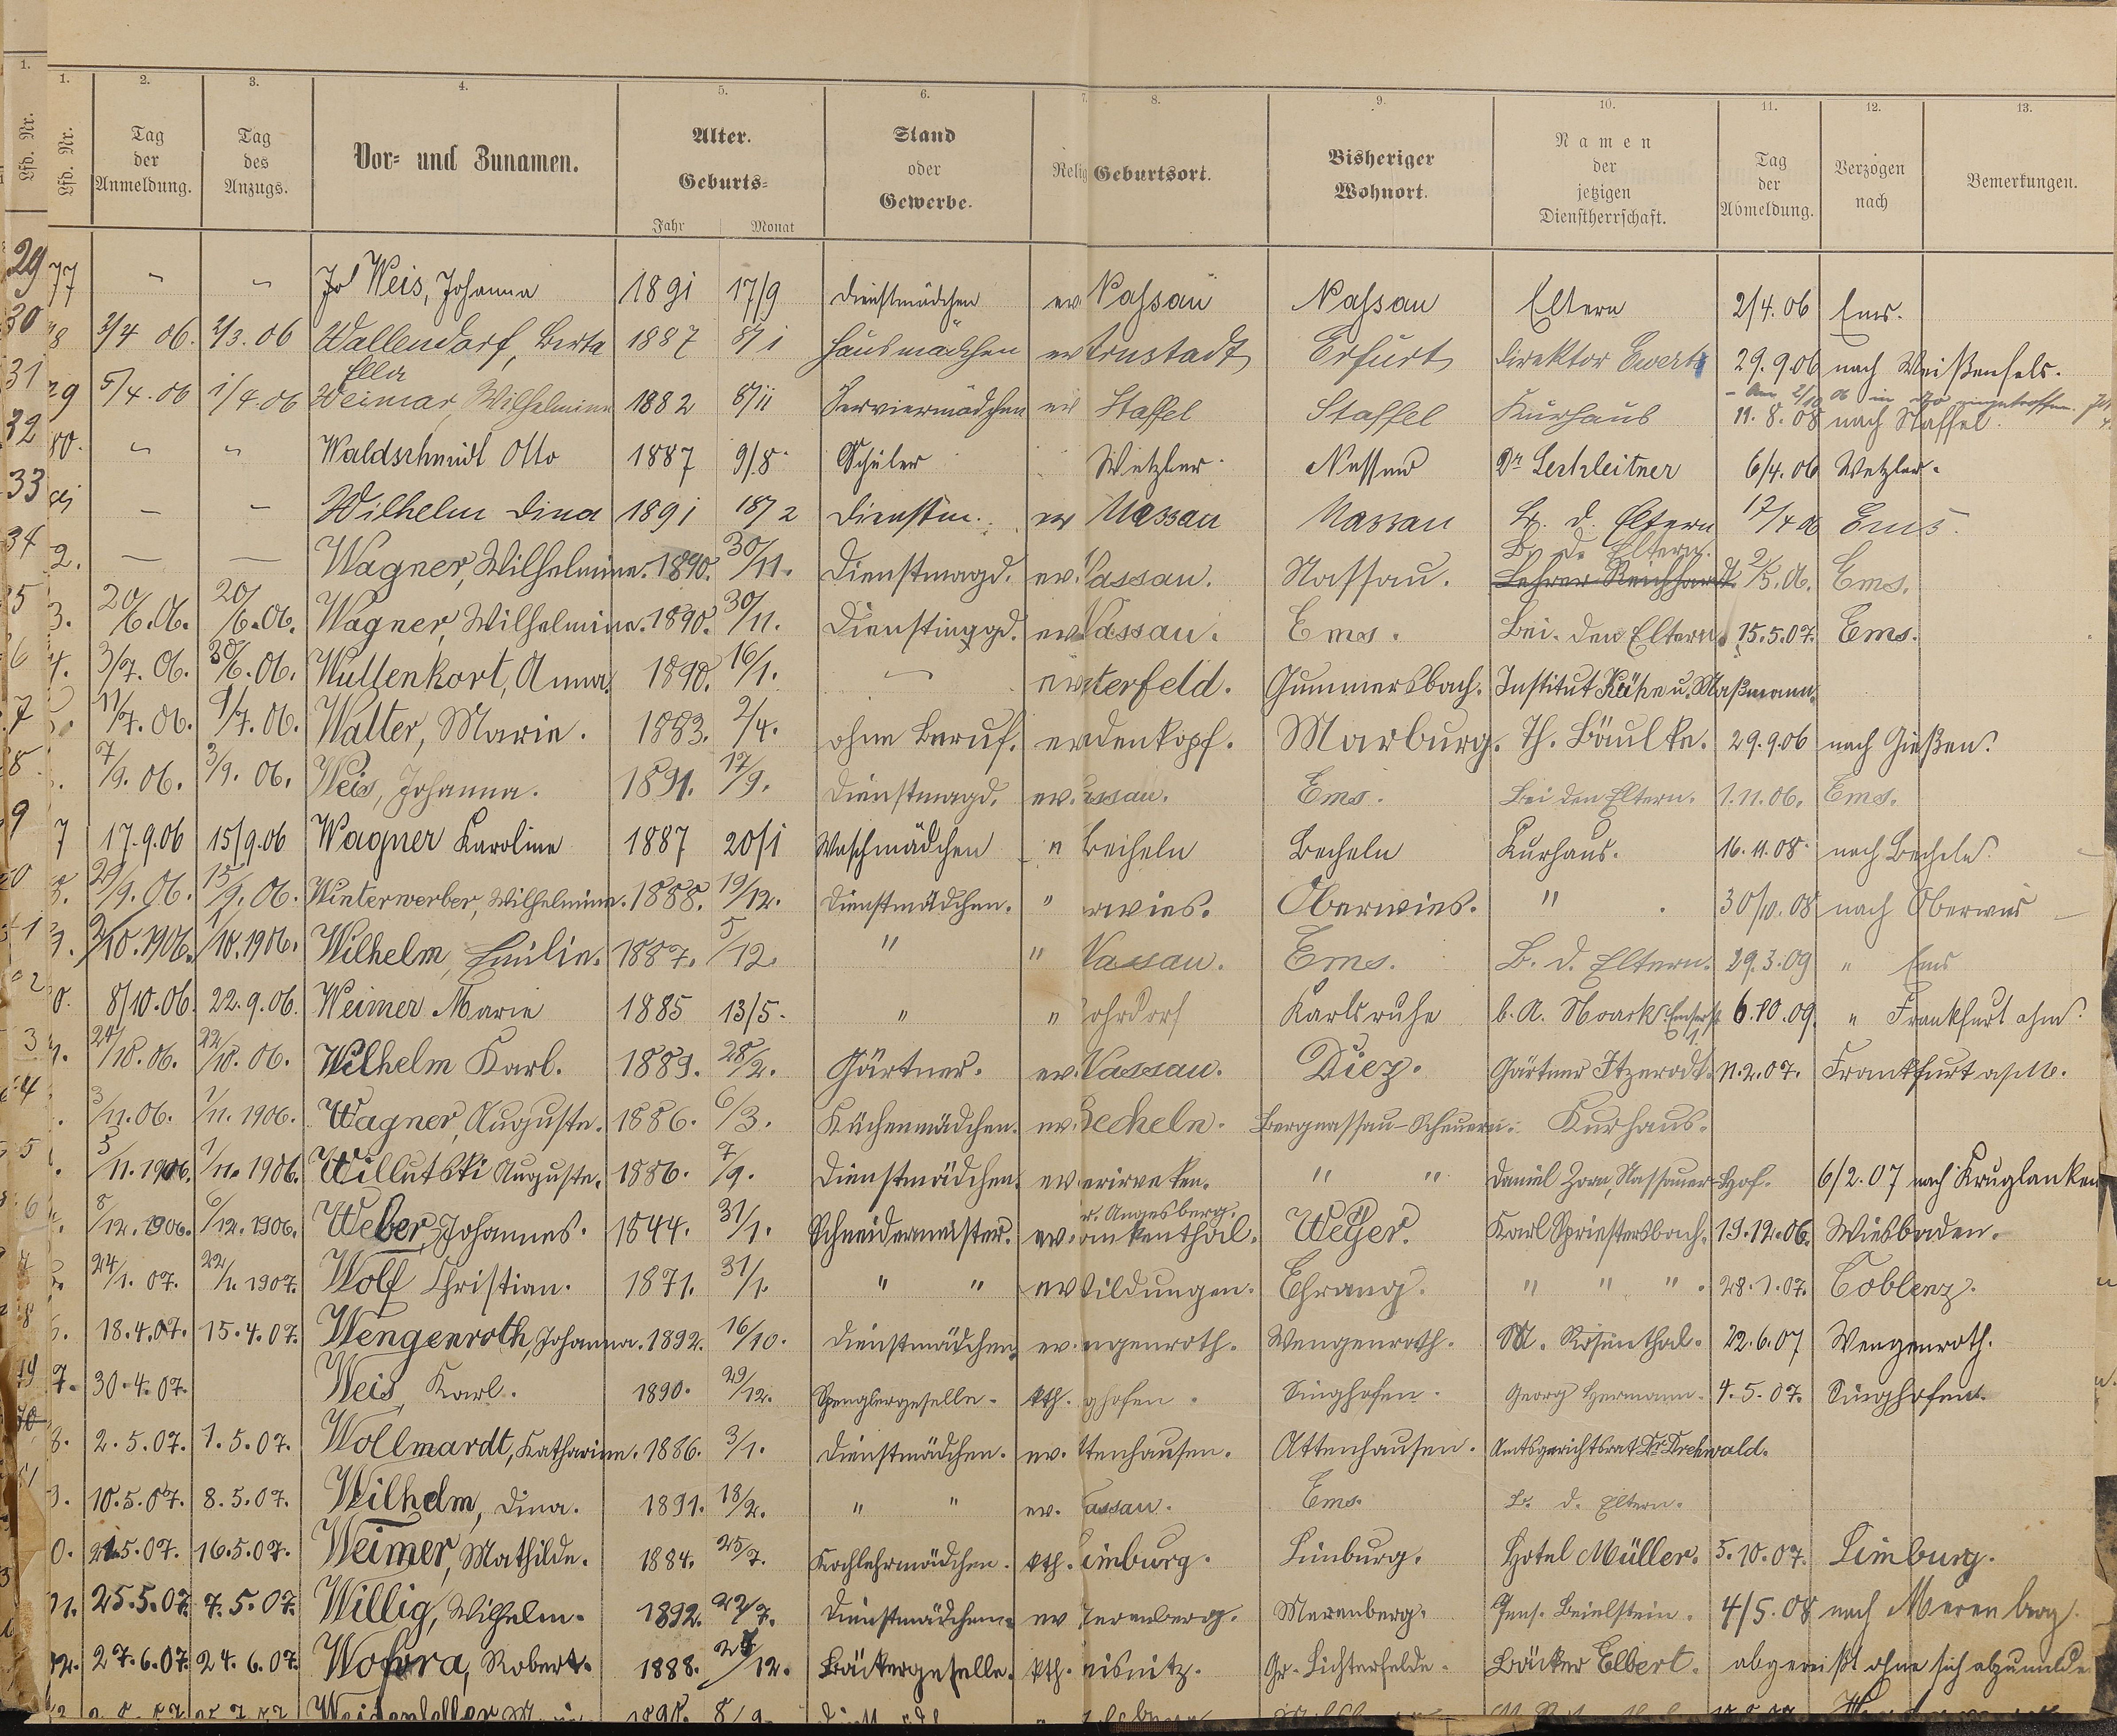 1. 1. 2. 3. 4. 5. 6. 7. 8. 9. 10. 11. 12. 13.
Lfd. Nr. Lfd. Nr. Tag der Anmeldung. Tag des Anzugs. Vor- und Zunamen. Alter. Geburts- Jahr Monat Stand oder Gewerbe. Relig Geburtsort. Bisheriger Wohnort. Namen der jetzigen Dienstherrschaft. Tag der Abmeldung. Verzogen nach Bemerkungen.
29 77 " " Weis, Johanna 1891 17/9 Dienstmädchen ev Nassau Nassau Eltern 2/4. 06 Ems.
30 8 3/4 06. 2/3. 06 Wallendorf, Berta 1887 8/1 Hausmädchen ev Arnstadt Erfurt Direktor Ewerts 29.9.06 nach Weißenfels.
Ella
31 29 5/4. 06 1/4. 06 Weimar, Wilhelmine 1882 8/11 Serviermädchen ev Staffel Staffel Kurhaus 11. 8. 08 nach Staffel.
32 80. " " Waldschmidt Otto 1887 9/8 Schüler Wetzlar Nassau Dr 6/4. 06 Wetzlar.
33 " " Wilhelm Dina 1891 18/2 Dienstm. ev Nassau Nassau B. d. Eltern 17/4 06 Ems.
B. d. Eltern.
34 2. — — Wagner, Wilhelmine. 1890. 30/11. Dienstmagd. ev. Nassau. Nassau. Lehrer Reichhardt. 2/5. 06. Ems.
35 3. 20/6. 06. 20/6. 06. Wagner, Wilhelmine. 1890. 30/11. Dienstmagd. ev. Nassau. Ems. Bei den Eltern. 15.5.07. Ems.
6 4. 3/7. 06. 30/6. 06. Wuttenkort, Anna. 1890. 16/1. — terfeld. Gummersbach. Institut Kühn u. Maßmann.
7 11/7. 06. 9/7. 06. Walter, Marie. 1883. 2/4. ohne Beruf. ev denkopf. Marburg. Th. Bäulke. 29.9.06 nach Gießen.
8 7/9. 06. 3/9. 06. Weis, Johanna. 1891. 17/9. Dienstmagd. ev. assau. Ems. Bei den Eltern. 1.11.06. Ems.
9 7 17.9.06 15/9.06 Wagner Karoline 1887 20/1 Waschmädchen " Becheln Becheln Kurhaus. 16.11.08. nach Becheln.
8. 29/9. 06. 15/9. 06. Winterwerber, Wilhelmine. 1888. 19/12. Dienstmädchen. " rwies. Oberwies. " 30/10. 08 nach Oberwies
1 9. 2/10. 1906. 1/10. 1906. Wilhelm, Emilie. 1887. 5/12. " " Nassau. Ems. B. d. Eltern. 29.3.09 " Ems
2 0. 8/10.06. 22.9.06. Weimer Marie 1885 13/5. " " ohrdorf Karlsruhe b. A. Noack Emserstr. 6.10.09. " Frankfurt
3 1. 24/10. 06. 22/10. 06. Wilhelm Karl. 1889. 28/2. Gärtner. ev. Nassau. Diez. Gärtner Itzerodt. 11.2.07. Frankfurt a/M.
4 3/11. 06. 1/11. 1906. Wagner, Auguste. 1886. 6/3. Küchenmädchen. ev. Becheln. Bergnassau-Scheuern. Kurhaus.
5 5/11. 1906. 1/11. 1906. Willutski Auguste. 1886. 7/9. Dienstmädchen. ev. " " Daniel Zorn, Nassauer-Hof. 6/2. 07 nach Kruglanken
r. Angesberg.
6 8/12. 1906. 6/12. 1906. Weber, Johannes. 1844. 31/1. Schneidermeister. ev. ankenthal. Weyer. Karl Spriestersbach. 19.12.06. Wiesbaden.
7 24/1. 07. 22/1. 1907. Wolf Christian. 1871. 31/1. " " ev Wildungen. Ehrang. " " " 28.1.07. Coblenz.
8 18.4.07. 15.4.07. Wengenroth, Johanna. 1892. 16/10. Dienstmädchen. ev. ngenroth. Wengenroth. M. Rosenthal. 22.6.07 Wengenroth.
7. 30.4.07. Weis, Karl. 1890. 29/12. Spenglergeselle. kth. ghofen. Singhofen. Georg Hermann. 4.5.07. Singhofen.
8. 2.5.07. 1.5.07. Wollmardt, Katharine. 1886. 3/1. Dienstmädchen. ev. ttenhausen. Attenhausen. Amtsgerichtsrat Dr.
9. 10.5.07. 8.5.07. Wilhelm, Dina. 1891. 18/2. " " ev. assau. Ems. B. d. Eltern.
0. 21.5.07. 16.5.07. Weimer, Mathilde. 1884. 25/7. Kochlehrmädchen. kth. Limburg. Limburg. Hotel Müller. 5.10.07. Limburg.
01. 25.5.07. 7.5.07. Willig, Wilhelm. 1892. 22/7. Dienstmädchen. ev Merenberg. Merenberg. Pens. Beielstein. 4/5. 08 nach Merenberg.
02. 27.6.07. 24.6.07. Robert. 1888. /12. Bäckergeselle. kth. eisnitz. Gr. Lichterfelde. Bäcker Elbert. abgereißt ohne sich abzumelde
Weidenfeller